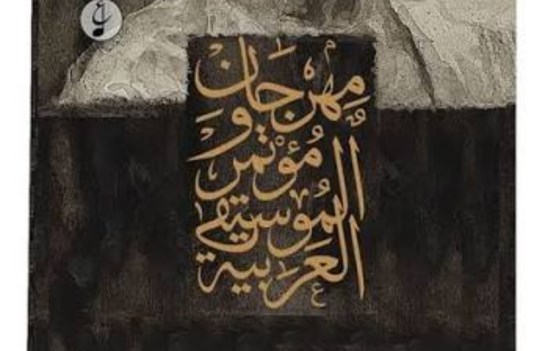 مهرجان
و
مؤتمر
الموسيقى
العربية